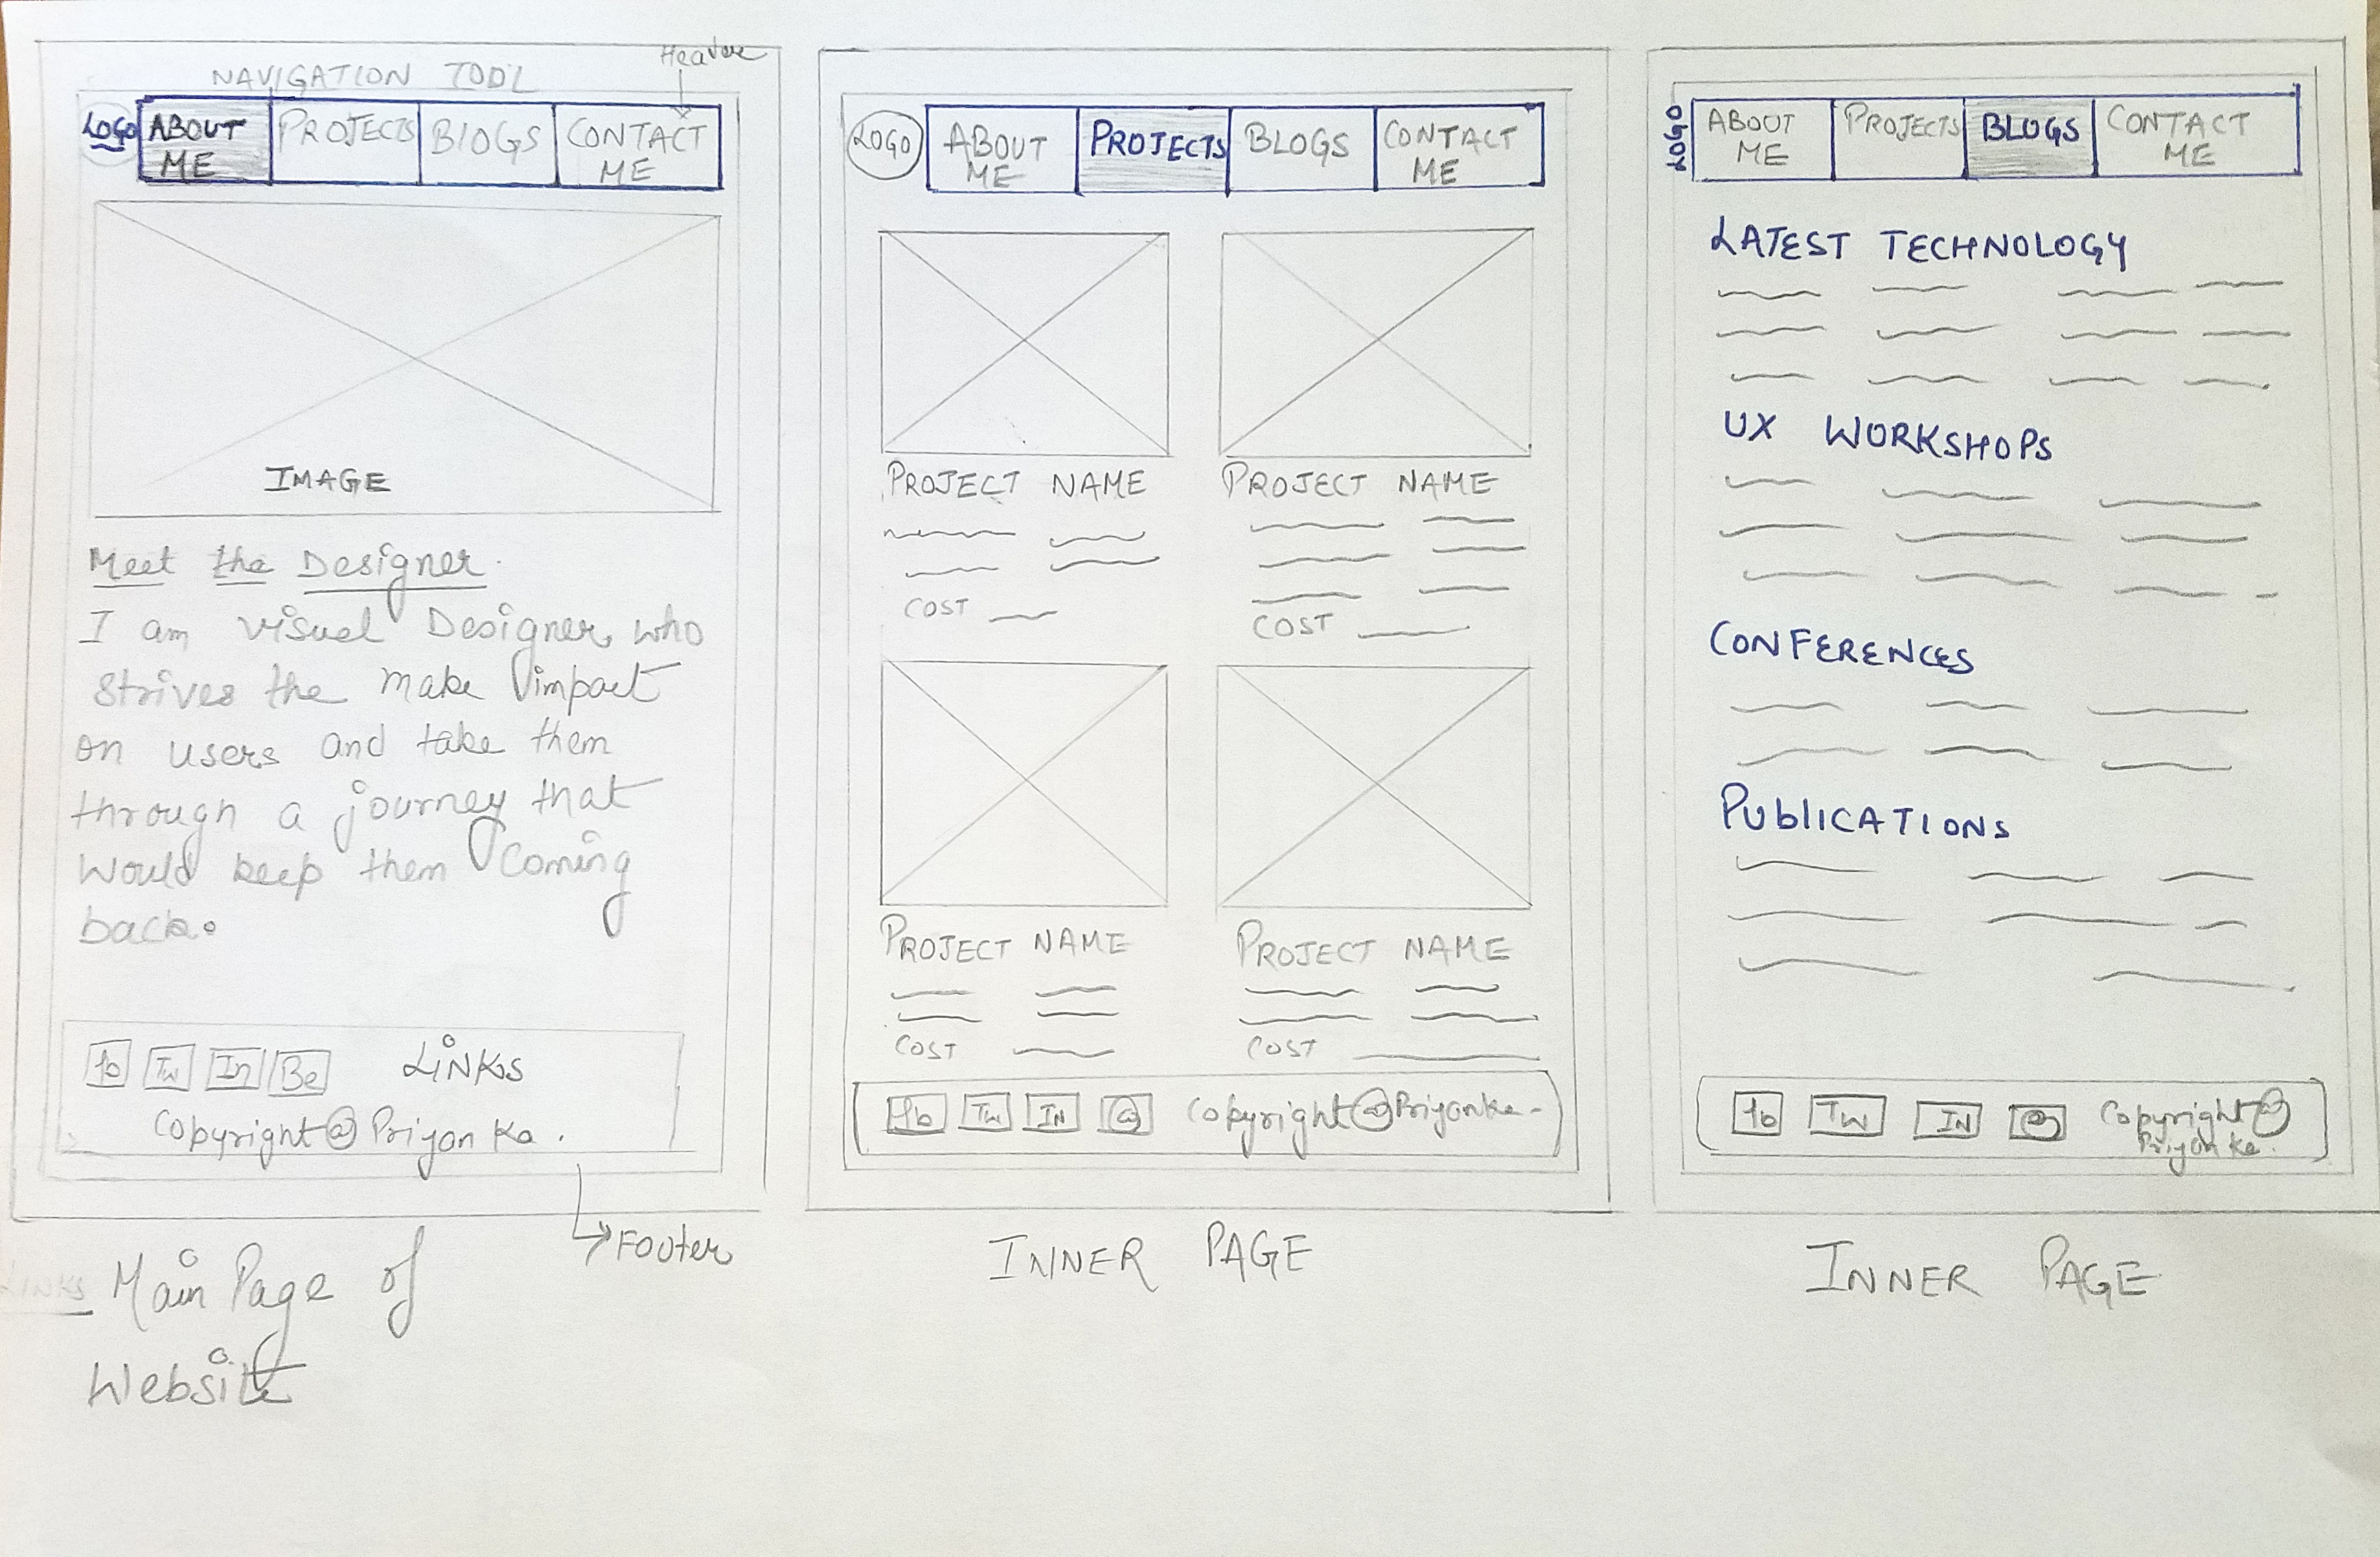 NAVIGATION TOOL
Header
LOGO
ABOUT
ME
PROJECTS
BLOGS
CONTACT
ME
IMAGE
Meet the Designer.
I am visual Designer, who
strives the make impact
on users and take them
through a journey that
would keep them coming
back.
fb Tw In Be LINKS
Copyright@Priyanka.
Footer
LINKS
Main Page of
Website
LOGO
ABOUT
ME
PROJECTS
BLOGS
CONTACT
ME
PROJECT NAME
COST
PROJECT NAME
COST
PROJECT NAME
COST
PROJECT NAME
COST
fb Tw IN @ Copyright@Priyanka-
INNER PAGE
LOGO
ABOUT
ME
PROJECTS
BLOGS
CONTACT
ME
LATEST TECHNOLOGY
UX WORKSHOPS
CONFERENCES
PUBLICATIONS
fb TW IN @ Copyright@
Priyanka.
INNER PAGE